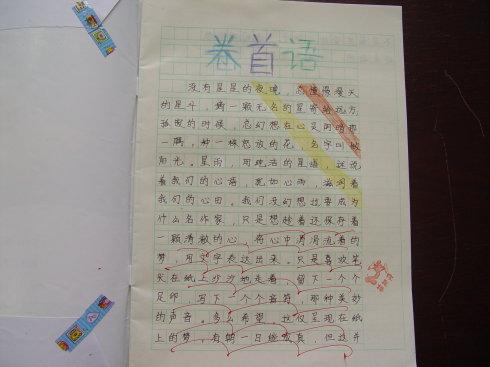 卷首语
没有星星的夜晚，总憧憬漫天
的星斗，摘一颗无名的星寄给远方
孤寂的时候，总幻想在心灵的暗夜
一隅，种一株怒放的花，名字叫做
阳光。星雨，用纯洁的星语，述说
着我们的心语，宛如心雨，滋润着
我们的心田。我们没幻想过要成为
什么名作家，只是想趁着还保存着
一颗清澈的心，将心中清清流着的
梦，用文字表达出来。只是喜欢笔
尖在纸上沙沙地走着，留下一个个
足印，写下一个个音符，那种美妙
的声音。多么希望，这仅呈现在纸
上的梦，有朝一日能成真，但这并